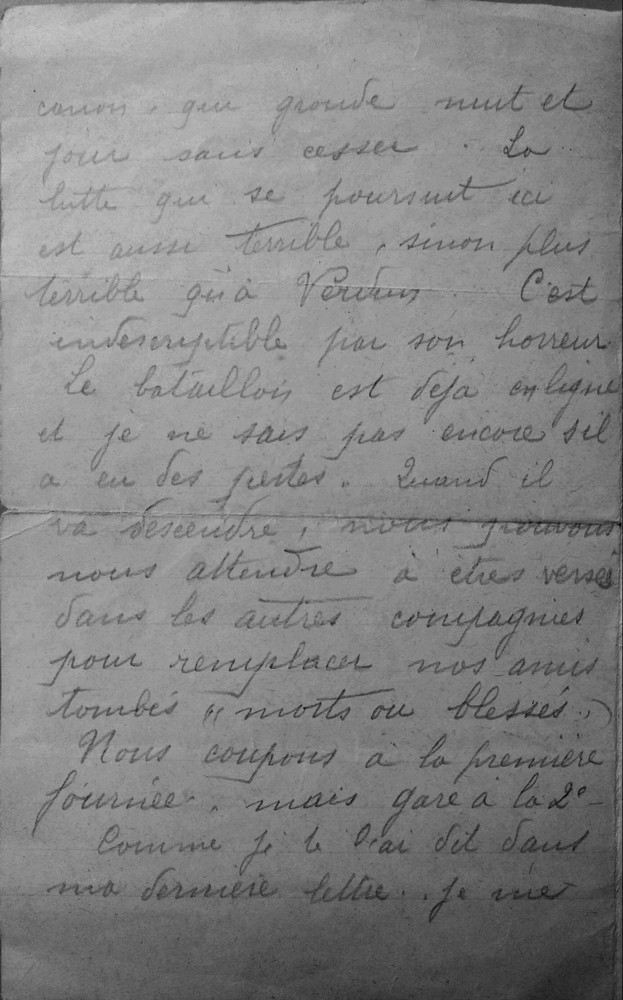 canon, qui gronde nuit et
jour sans cesser. La
lutte qui se poursuit ici
est aussi terrible, sinon plus
terrible qu'à Verdun. C'est
indescriptible par son horreur.
Le bataillon est déjà en ligne
et je ne sais pas encore s'il
a eu des pertes. Quand il
va descendre, nous pouvons
nous attendre à êtres versés
dans les autres compagnies
pour remplacer nos amis
tombés (morts ou blessés.)
Nous coupons à la première
journée, mais gare à la 2e
Comme je te l'ai dit dans
ma dernière lettre. je me